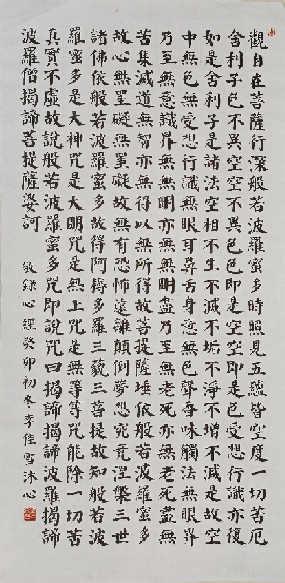 觀自在菩薩行深般若波羅蜜多時照見五蘊皆空度一切苦厄
舍利子色不異空空不異色色即是空空即是色受想行識亦復
如是舍利子是諸法空相不生不滅不垢不淨不增不減是故空
中無色無受想行識無眼耳鼻舌身意無色聲香味觸法無眼界
乃至無意識界無無明亦無無明盡乃至無老死亦無老死盡無
苦集滅道無智亦無得以無所得故菩提薩埵依般若波羅蜜多
故心無罣礙無罣礙故無有恐怖遠離顛倒夢想究竟涅槃三世
諸佛依般若波羅蜜多故得阿耨多羅三藐三菩提故知般若波
羅蜜多是大神咒是大明咒是無上咒是無等等咒能除一切苦
真實不虛故說般若波羅蜜多咒即說咒曰揭諦揭諦波羅揭諦
波羅僧揭諦菩提薩婆訶
敬錄心經癸卯初冬李佳雪沐心